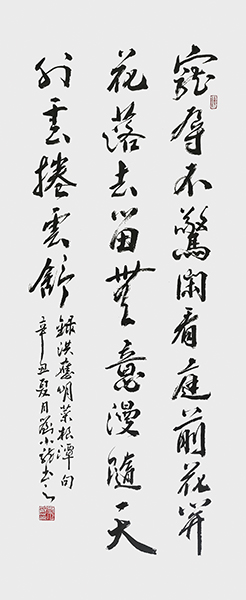 寵辱不驚閑看庭前花開
花落去留無意漫隨天
外雲捲雲舒
錄洪應明菜根潭句
辛丑夏月